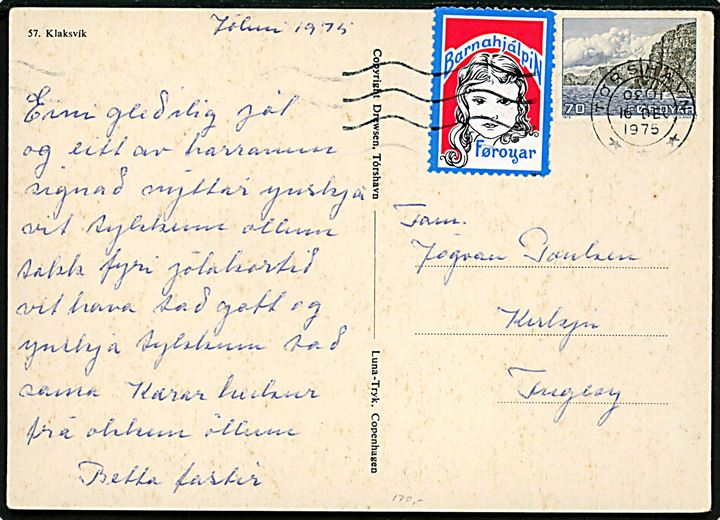 57. Klaksvík
Jólini 1975
Eini gleðilig jól
og eitt av harranum
signað nýttár ynskja
vit tykkum øllum
takk fyri jólakortið
vit hava tað gott og
ynskja tykkum tað
sama Kærar heilsur
frá okkum øllum
Betta fastir
Copyright Drewsen, Tórshavn
Luna-Tryk, Copenhagen
BarnahjálpiN
Føroyar
70 FØROYAR
TÓRSHAVN
16 DEC
1975
Fam.
Jógvan Poulsen
Kirkju
Fugloy
170,-